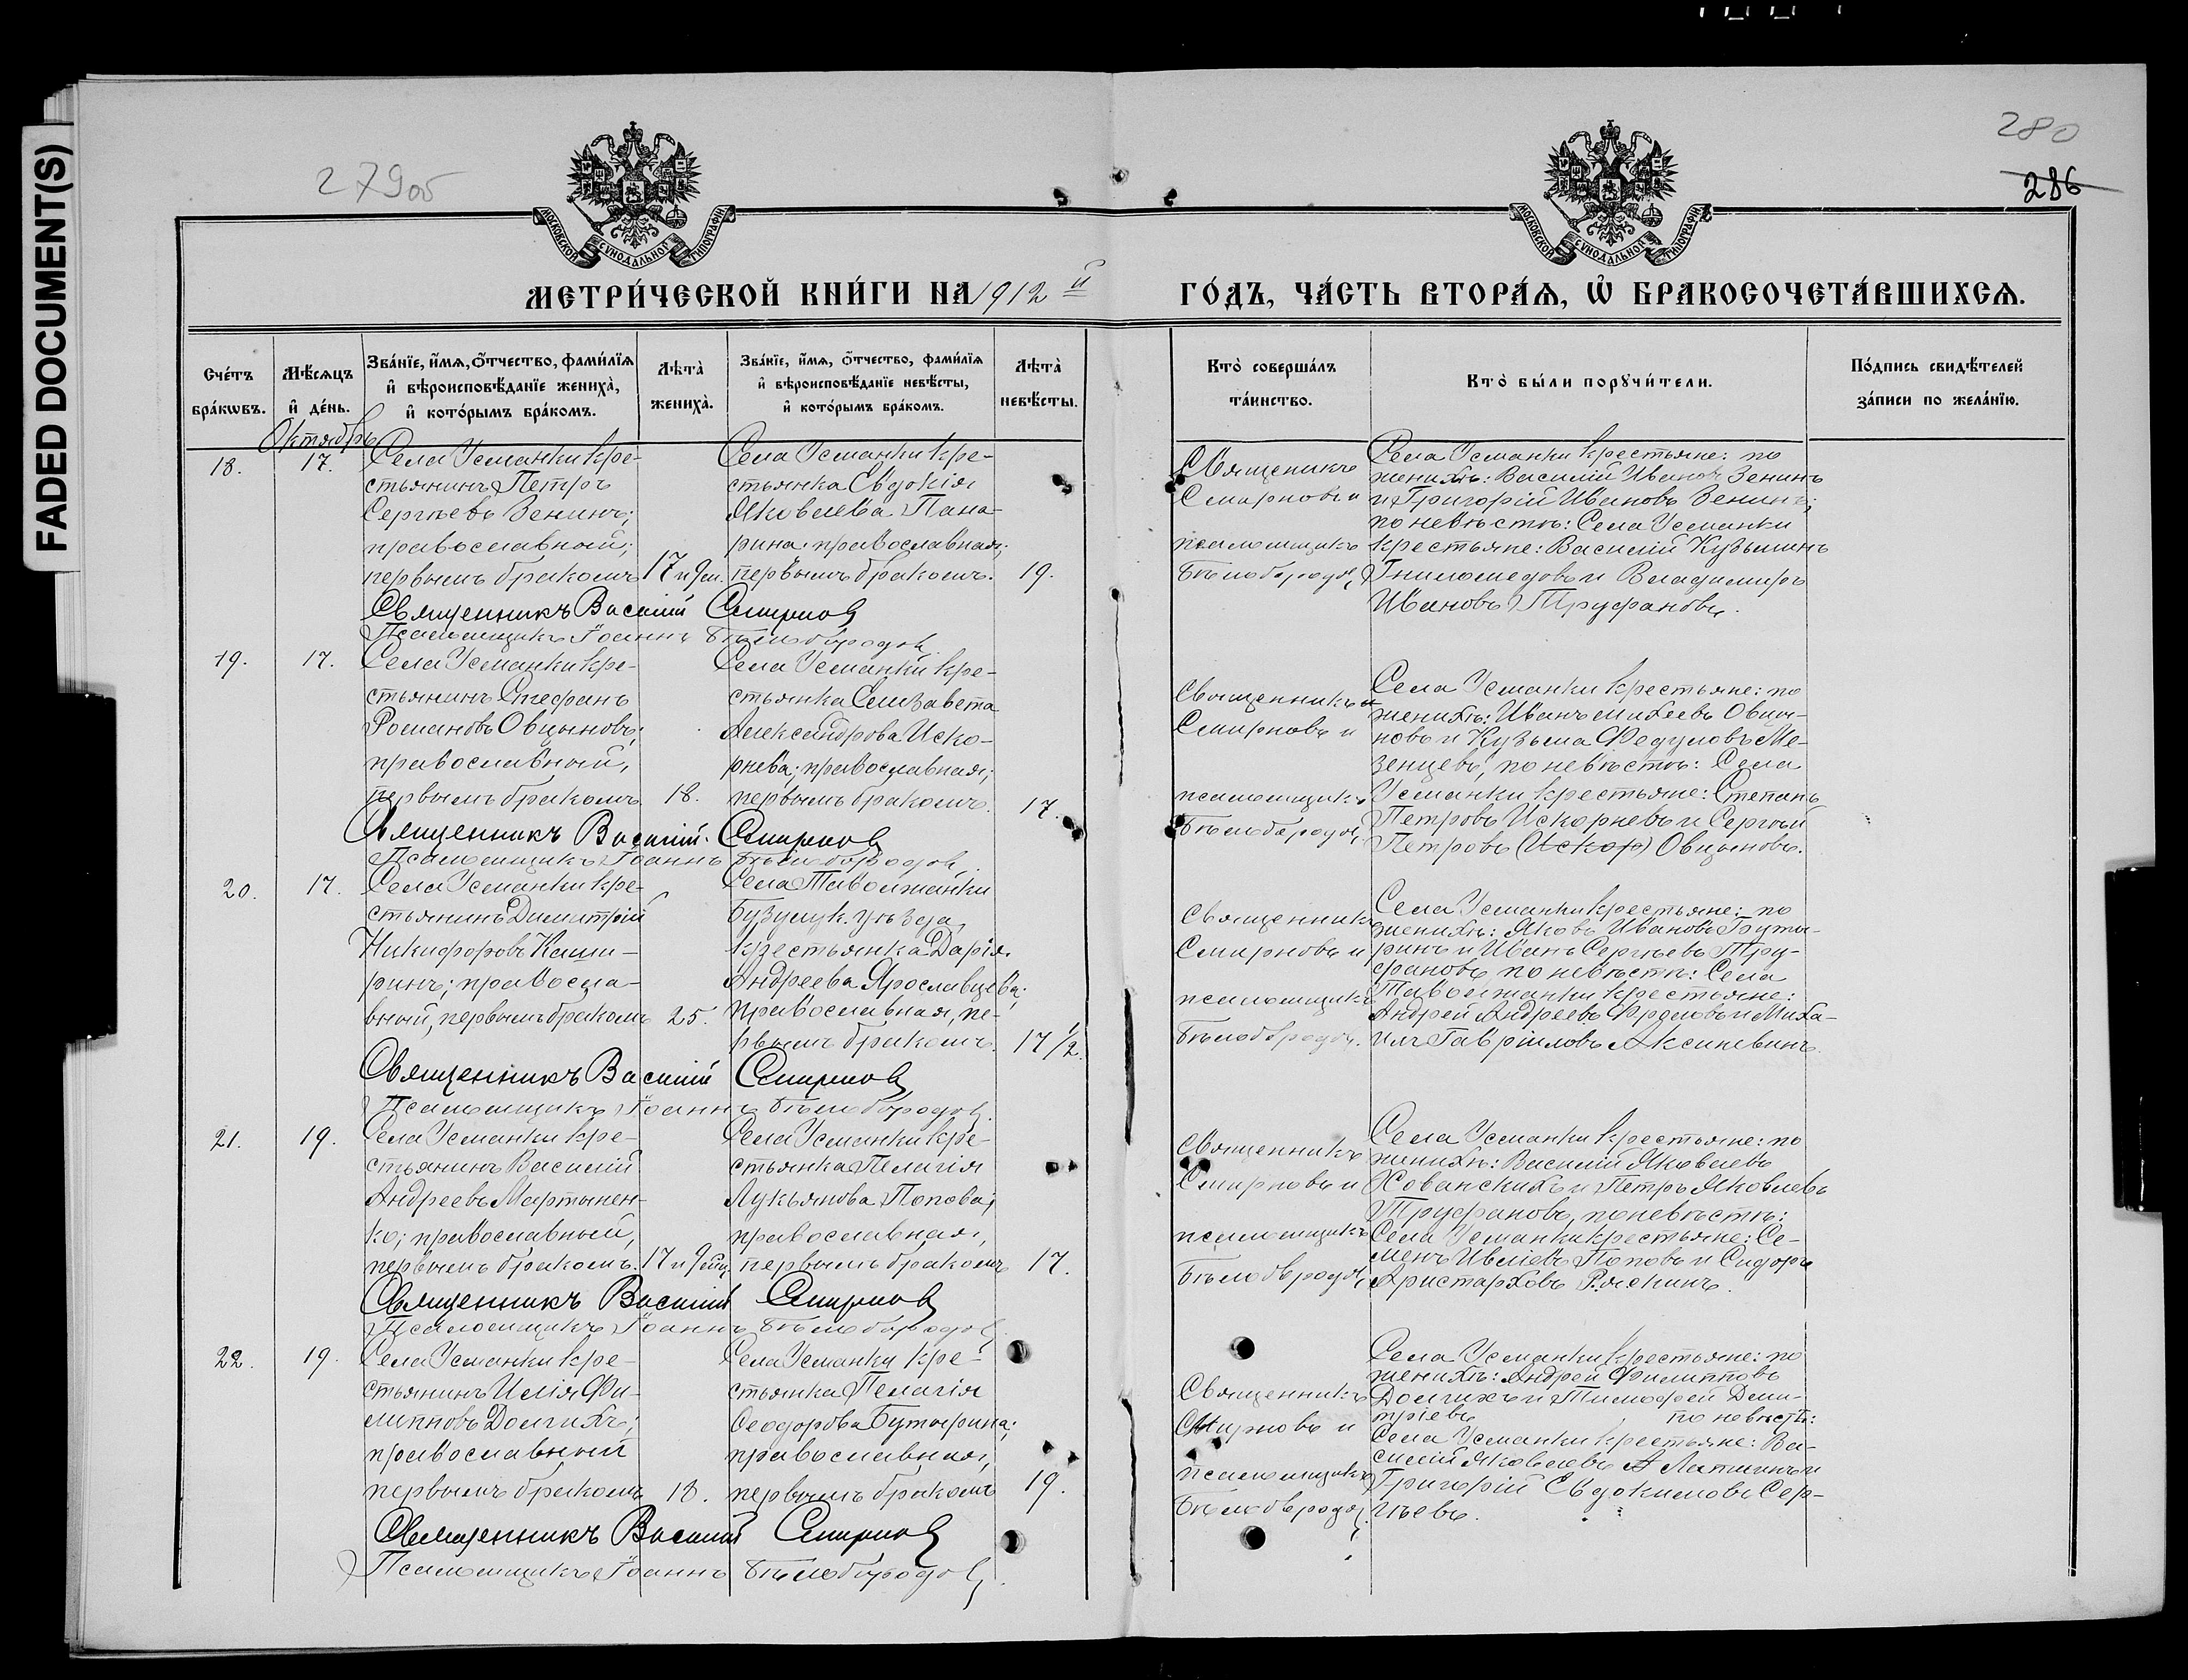 FADED DOCUMENT(S)
279об
280
286
МОСКОВСКОЙ СѴНОДАЛЬНОЙ ТИПОГРАФІИ
МОСКОВСКОЙ СѴНОДАЛЬНОЙ ТИПОГРАФІИ
МЕТРИ́ЧЕСКОЙ КНИ́ГИ НА 1912 й ГО́ДЪ, ЧА́СТЬ ВТОРА́Ѧ, Ѡ҆ БРАКОСОЧЕТА́ВШИХСѦ.
Сче́тъ
бра́кѡвъ.
Мѣ́сѧцъ
и҆ де́нь.
Зва́нїе, и҆́мѧ, ѻ҆́тчество, фами́лїѧ
и҆ вѣроисповѣ́данїе жениха̀,
и҆ кото́рымъ бра́комъ.
Лѣ́та̀
жениха̀.
Зва́нїе, и҆́мѧ, ѻ҆́тчество, фами́лїѧ
и҆ вѣроисповѣ́данїе невѣ́сты,
и҆ кото́рымъ бра́комъ.
Лѣ́та̀
невѣ́сты.
Кто̀ соверша́лъ
та́инство.
Кто̀ бы́ли порꙋчи́тели.
По́дпись свидѣ́телей
за́писи по жела́нїю.
Октябрь
18.
17.
Села Усманки кре-
стьянинъ Петръ
Сергѣевъ Зенинъ;
православный;
первымъ бракомъ
17 и 9 м.
Села Усманки кре-
стьянка Евдокія
Яковлева Пана-
рина православная;
первымъ бракомъ.
19.
Священникъ
Смирновъ и
псаломщикъ
Бѣлобородовъ
Села Усманки крестьяне: по
женихѣ: Василій Ивановъ Зенинъ
и Григорій Ивановъ Зенинъ;
по невѣстѣ: Села Усманки
крестьяне: Василій Кузьминъ
Гниломедовъ и Владимиръ
Ивановъ Труфановъ.
Священникъ Василій Смирновъ
Псаломщикъ Іоаннъ Бѣлобородовъ
19.
17.
Села Усманки кре-
стьянинъ Стефанъ
Романовъ Овцыновъ;
православный,
первымъ бракомъ
18.
Села Усманки кре-
стьянка Елизавета
Александрова Иско-
рнева; православная;
первымъ бракомъ.
17.
Священникъ
Смирновъ и
псаломщикъ
Бѣлобородовъ
Села Усманки крестьяне: по
женихѣ: Иванъ Михеевъ Овцы-
новъ и Кузьма Федуловъ Ме-
зенцевъ, по невѣстѣ: Села
Усманки крестьяне: Степанъ
Петровъ Искорневъ и Сергѣй
Петровъ (Искор) Овцыновъ.
Священникъ Василій Смирновъ
Псаломщикъ Іоаннъ Бѣлобородовъ
20.
17.
Села Усманки кре-
стьянинъ Димитрій
Никифоровъ Каши-
ринъ; правосла-
вный, первымъ бракомъ
25.
Села Таволжанки
Бузулук. уѣзда,
крестьянка Дарія
Андреева Ярославцева;
православная, пе-
рвымъ бракомъ.
17 1/2
Священникъ
Смирновъ и
псаломщикъ
Бѣлобородовъ
Села Усманки крестьяне: по
женихѣ: Яковъ Ивановъ Буты-
ринъ и Иванъ Сергѣевъ Тру-
фановъ по невѣстѣ: Села
Таволжанки крестьяне:
Андрей Андреевъ Фроловъ и Миха-
илъ Гавріиловъ Аксиневинъ.
Священникъ Василій Смирновъ
Псаломщикъ Іоаннъ Бѣлобородовъ
21.
19.
Села Усманки кре-
стьянинъ Василій
Андреевъ Мартынен-
ко; православный,
первымъ бракомъ.
17 и 9 мц.
Села Усманки кре-
стьянка Пелагія
Лукьянова Попова;
православная,
первымъ бракомъ
17.
Священникъ
Смирновъ и
псаломщикъ
Бѣлобородовъ
Села Усманки крестьяне: по
женихѣ: Василій Яковлевъ
Хованскихъ и Петръ Яковлевъ
Труфановъ, по невѣстѣ:
Села Усманки крестьяне: Се-
менъ Ивлiевъ Поповъ и Сидоръ
Аристарховъ Ряскинъ.
Священникъ Василій Смирновъ
Псаломщикъ Іоаннъ Бѣлобородовъ
22.
19.
Села Усманки кре-
стьянинъ Илія Фи-
липповъ Долгихъ;
православный
первымъ бракомъ
18.
Села Усманки кре-
стьянка Пелагія
Ѳеодорова Бутырина;
православная,
первымъ бракомъ
19.
Священникъ
Смирновъ и
псаломщикъ
Бѣлобородовъ
Села Усманки крестьяне: по
женихѣ: Андрей Филипповъ
Долгихъ и Тимофей Дими-
тріевъ , по невѣстѣ:
Села Усманки крестьяне: Ва-
силій Яковлевъ Лапшинъ и
Григорій Евдокимовъ Сер-
гѣевъ.
Священникъ Василій Смирновъ
Псаломщикъ Іоаннъ Бѣлобородовъ